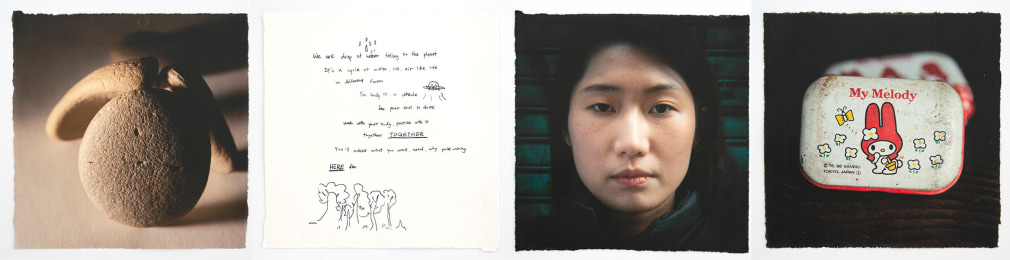 We are drop of water falling to the planet
It's a cycle of water, ice, air like life
in different form
The body is a vehicle
for your soul to drive
work with your body, practice with it
together TOGETHER
You'll where what you want, need, why you're coming
HERE for
My Melody
© '76, '96 SANRIO
TOKYO, JAPAN